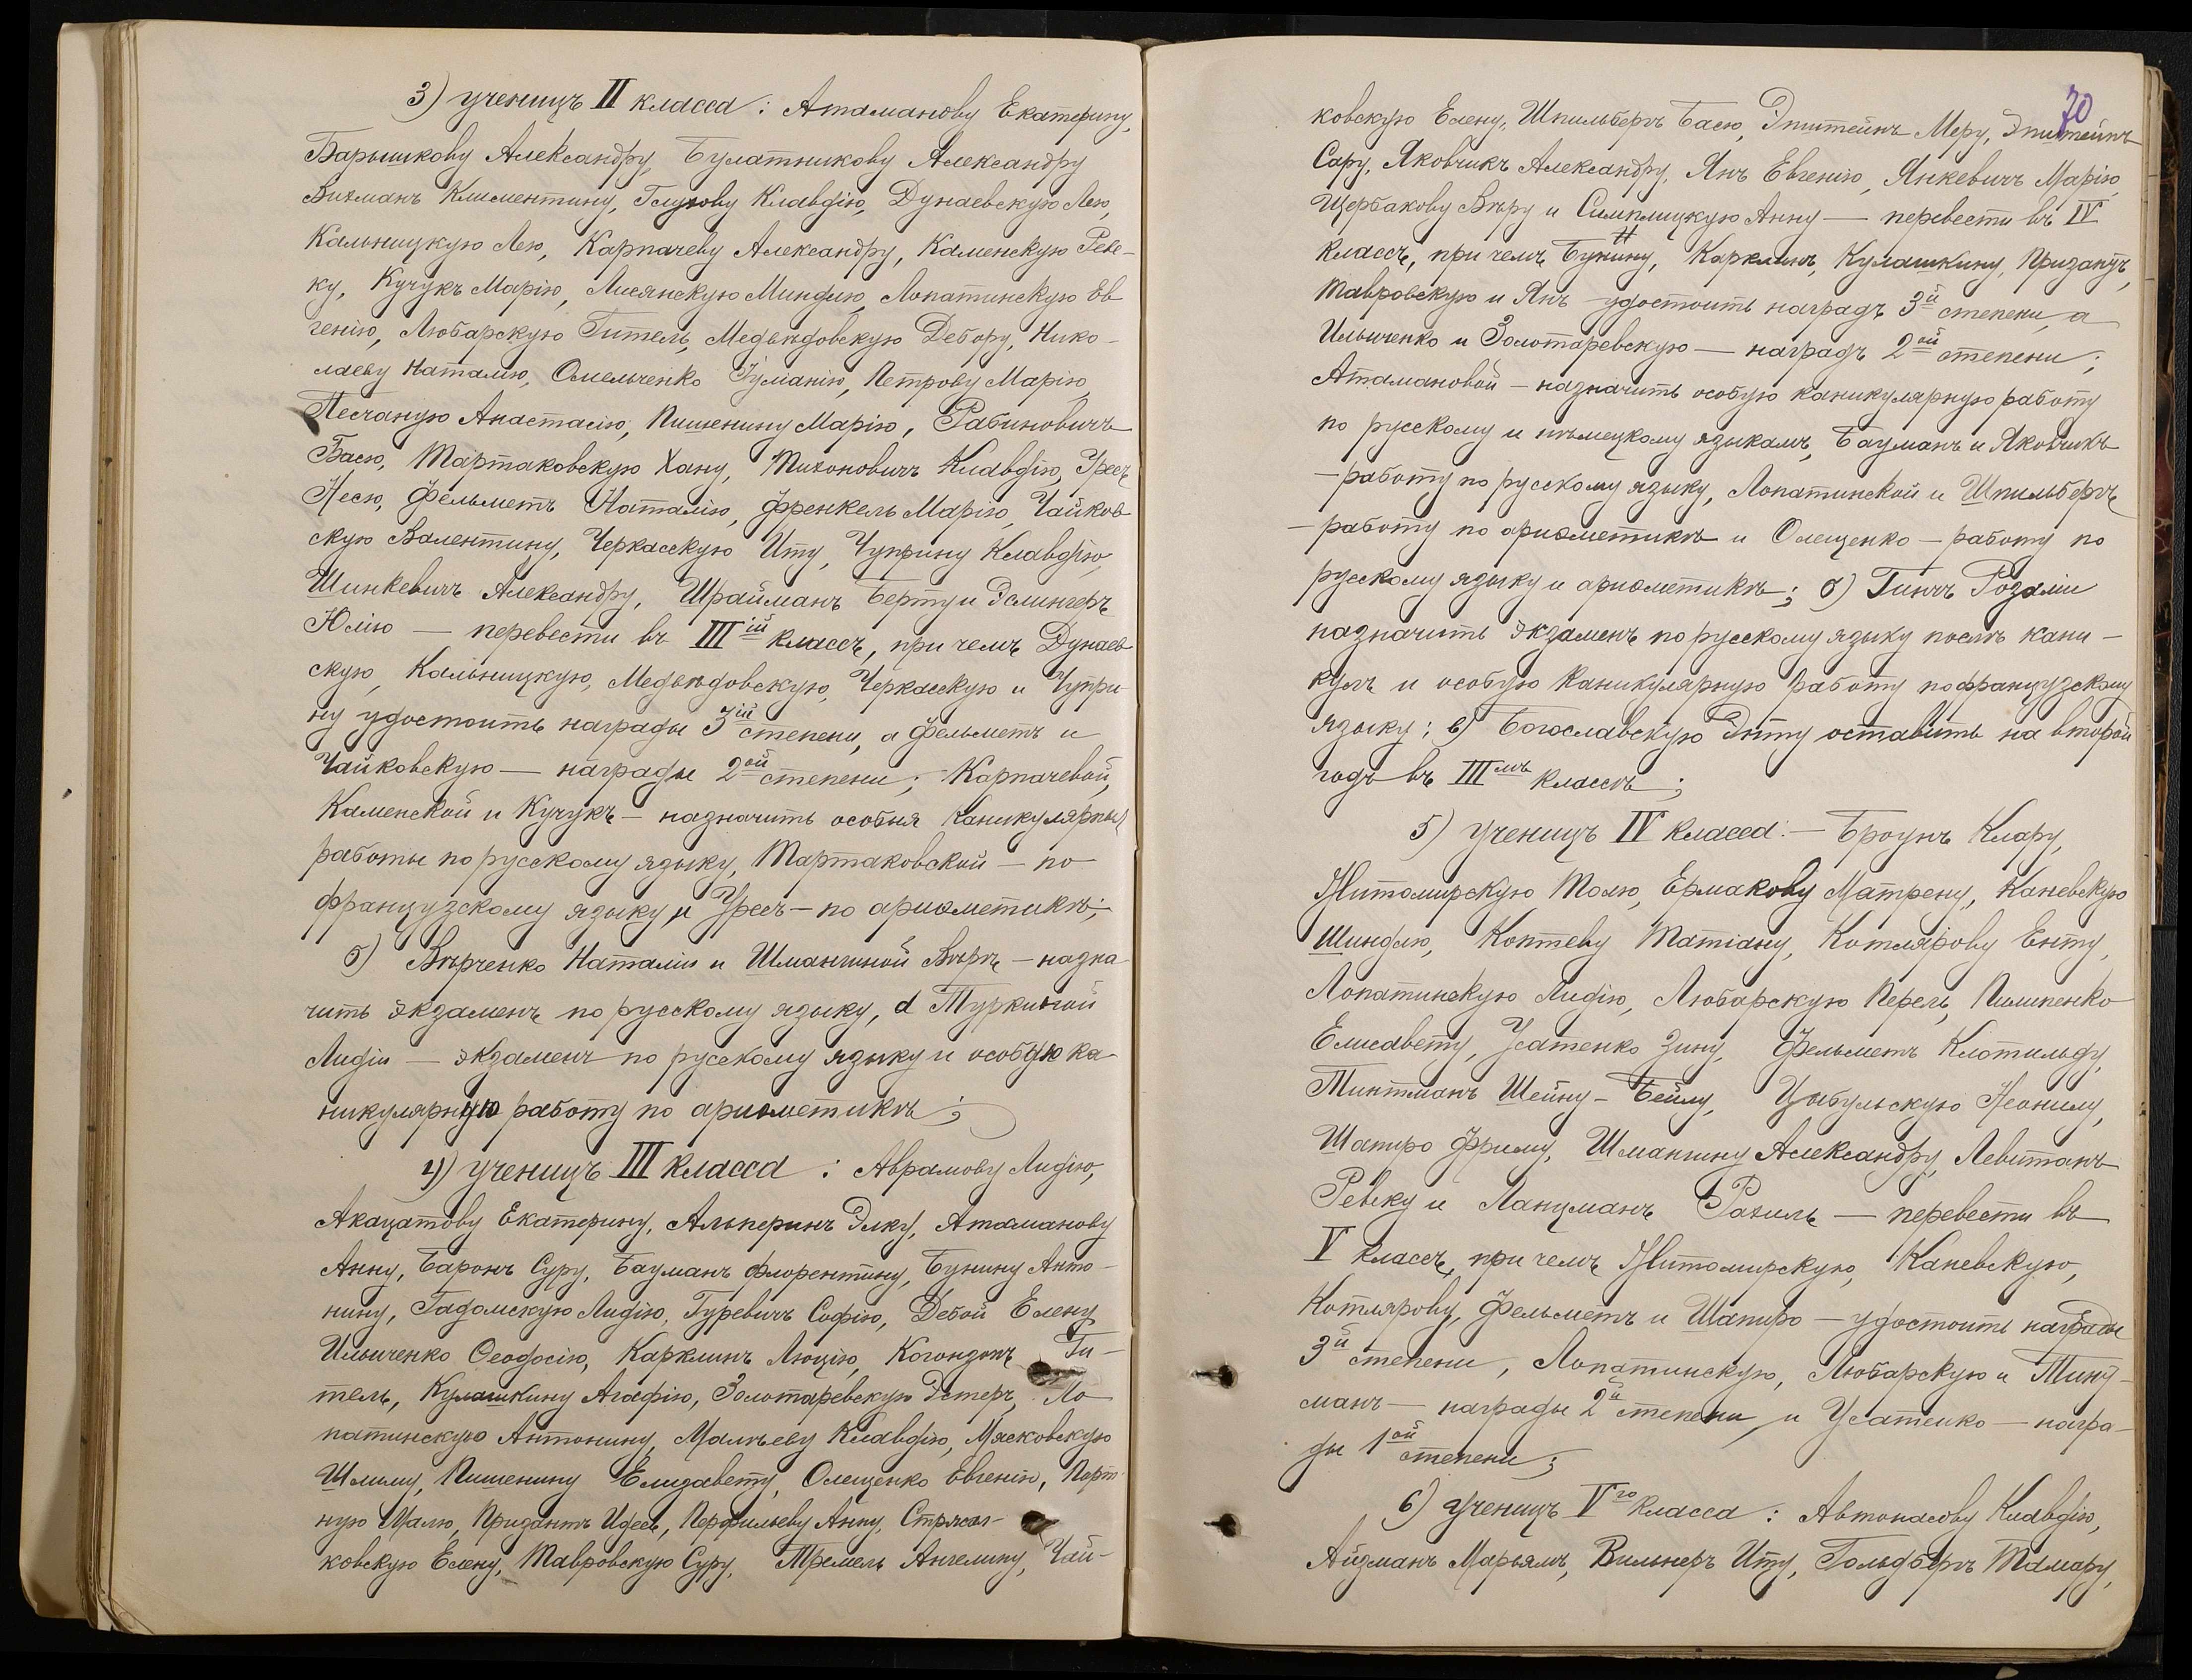 3) ученицъ II класса: Атаманову Екатерину,
Барышкову Александру, Булатникову Александру
Вихманъ Климентину, Глухову Клавдію, Дунаевскую Лею,
Кальницкую Лею, Карпачеву Александру, Каменскую Реве-
ку, Кучукъ Марію, Лисянскую Миндлю, Лопатинскую Ев
генію, Любарскую Гитель, Медвѣдовскую Дебору, Нико-
лаеву Наталію, Омельченко Іуліанію, Петрову Марію,
Песчаную Анастасію, Пишенину Марію, Рабиновичъ
Басю, Мартаковскую Хану, Тихоновичъ Клавдію, Уресъ
Несю, Фельметъ Наталію, Френкель Марію, Чайков-
скую Валентину, Черкасскую Иту, Чуприну Клавдію,
Шинкевичъ Александру, Шрайманъ Берту и Эслингеръ
Юлію — перевести въ III ій классъ, при чемъ Дунаев-
скую, Кальницкую, Медвѣдовскую, Черкасскую и Чупри-
ну удостоить награды 3 ій степени, а Фельметъ и
Чайковскую — награды 2 ой степени; Карпачевой,
Каменской и Кучукъ — назначить особыя каникулярныя
работы по русскому языку, Мартаковской — по
французскому языку, и Уресъ — по ариѳметикѣ;
б) Вѣрченко Наталіи и Шмангиной Вѣрѣ — назна-
чить экзаменъ по русскому языку, а Туркиной
Лидіи — экзаменъ по русскому языку и особую ка-
никулярную работу по ариѳметикѣ;
4) ученицъ III класса: Аврамову Лидію,
Акацатову Екатерину, Альперинъ Элку, Атаманову
Анну, Баронъ Суру, Бауманъ Флорентину, Бунину Анто-
нину, Гадомскую Лидію, Гуревичъ Софію, Дебой Елену,
Ильиченко Ѳеодосію, Карклинъ Люцію, Когонзонъ Ги-
тель, Кулашкину Агафію, Золотаревскую Эстеръ, Ло
патинскую Антонину, Малѣеву Клавдію, Мясковскую
Шлиму, Пишенину Елизавету, Олещенко Евгенію, Порт-
ную Малю, Придантъ Идесъ, Перфильеву Анну,
ковскую Елену, Тавровскую Суру, Тремель Ангелину, Чай-
70
ковскую Елену, Шпильбергъ Басю, Эпштейнъ Меру, Эпштейнъ
Сару, Яковчикъ Александру, Янъ Евгенію, Янкевичъ Марію,
Щербакову Вѣру и Симплицкую Анну — перевести въ IV
классъ, при чемъ Бунину, Карклинъ, Кулашкину, Придантъ,
Тавровскую и Янъ удостоить наградъ 3 й степени, а
Ильиченко и Золотаревскую — наградъ 2 ой степени;
Атамановой — назначить особую каникулярную работу
по русскому и нѣмецкому языкамъ, Бауманъ и Яковчикъ
— работу по русскому языку, Лопатинской и Шпильбергъ
— работу по ариѳметикѣ и Олещенко — работу по
русскому языку и ариѳметикѣ; б) Гинчъ Розаліи
назначить экзаменъ по русскому языку послѣ кани-
кулъ и особую каникулярную работу по французскому
языку; в) Богославскую Энту оставить на второй
годъ въ III мъ классѣ;
5) ученицъ IV класса: — Броунъ Клару,
Житомирскую Толю, Ермакову Матрену, Каневскую
Шиндлю, Коптеву Татіану, Котлярову Енту,
Лопатинскую Лидію, Любарскую Перель, Пилипенко
Елисавету, Усатенко Зину, Фельметъ Клотильду,
Тинтманъ Шейну-Бейлу, Цыбульскую Неонилу,
Шапиро Фриму, Шмангину Александру, Левитанъ
Ревеку и Ланцманъ Рахиль — перевести въ
V классъ, при чемъ Житомирскую, Каневскую,
Котлярову, Фельметъ и Шапиро — удостоить награды
3 й степени, Лопатинскую, Любарскую и Тинт-
манъ — награды 2 й степени и Усатенко — награ-
ды 1 ой степени;
6) Ученицъ V го класса: Автонасову Клавдію,
Айзманъ Марьямъ, Вильнеръ Иту, Гольдбергъ Тамару,